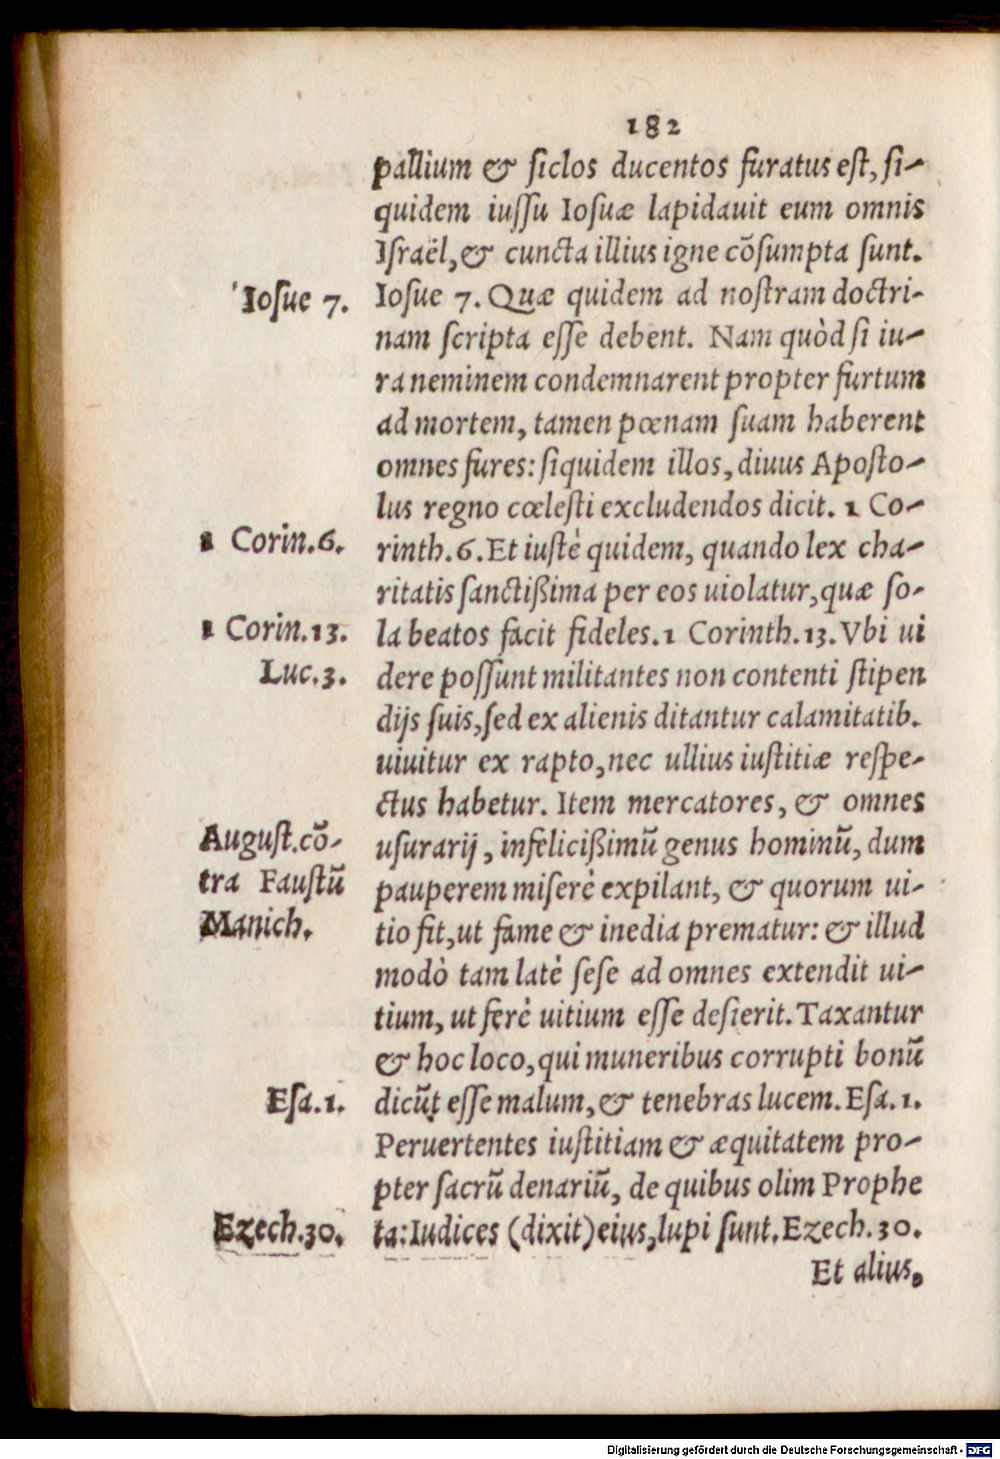 182
pallium & siclos ducentos furatus est, si-
quidem iussu Iosuæ lapidauit eum omnis
Israël, & cuncta illius igne cõsumpta sunt.
Iosue 7.
Iosue 7. Quæ quidem ad nostram doctri-
nam scripta esse debent. Nam quòd si iu-
ra neminem condemnarent propter furtum
ad mortem, tamen pœnam suam haberent
omnes fures: siquidem illos, diuus Aposto-
lus regno cœlesti excludendos dicit. 1 Co-
1 Corin.6.
rinth.6. Et iustè quidem, quando lex cha-
ritatis sanctißima per eos uiolatur, quæ so-
1 Corin.13.
la beatos facit fideles. 1 Corinth.13. Vbi ui
Luc.3.
dere possunt militantes non contenti stipen
dijs suis, sed ex alienis ditantur calamitatib.
uiuitur ex rapto, nec ullius iustitiæ respe-
ctus habetur. Item mercatores, & omnes
August.cõ-
tra Faustũ
Manich.
usurarij, infelicißimũ genus hominũ, dum
pauperem miserè expilant, & quorum ui-
tio fit, ut fame & inedia prematur: & illud
modò tam latè sese ad omnes extendit ui-
tium, ut ferè uitium esse desierit. Taxantur
& hoc loco, qui muneribus corrupti bonũ
Esa.1.
dicũt esse malum, & tenebras lucem. Esa.1.
Peruertentes iustitiam & æquitatem pro-
pter sacrũ denariũ, de quibus olim Prophe
Ezech.30.
ta: Iudices (dixit) eius, lupi sunt. Ezech.30.
Et alius.
Digitalisierung gefördert durch die Deutsche Forschungsgemeinschaft - DFG